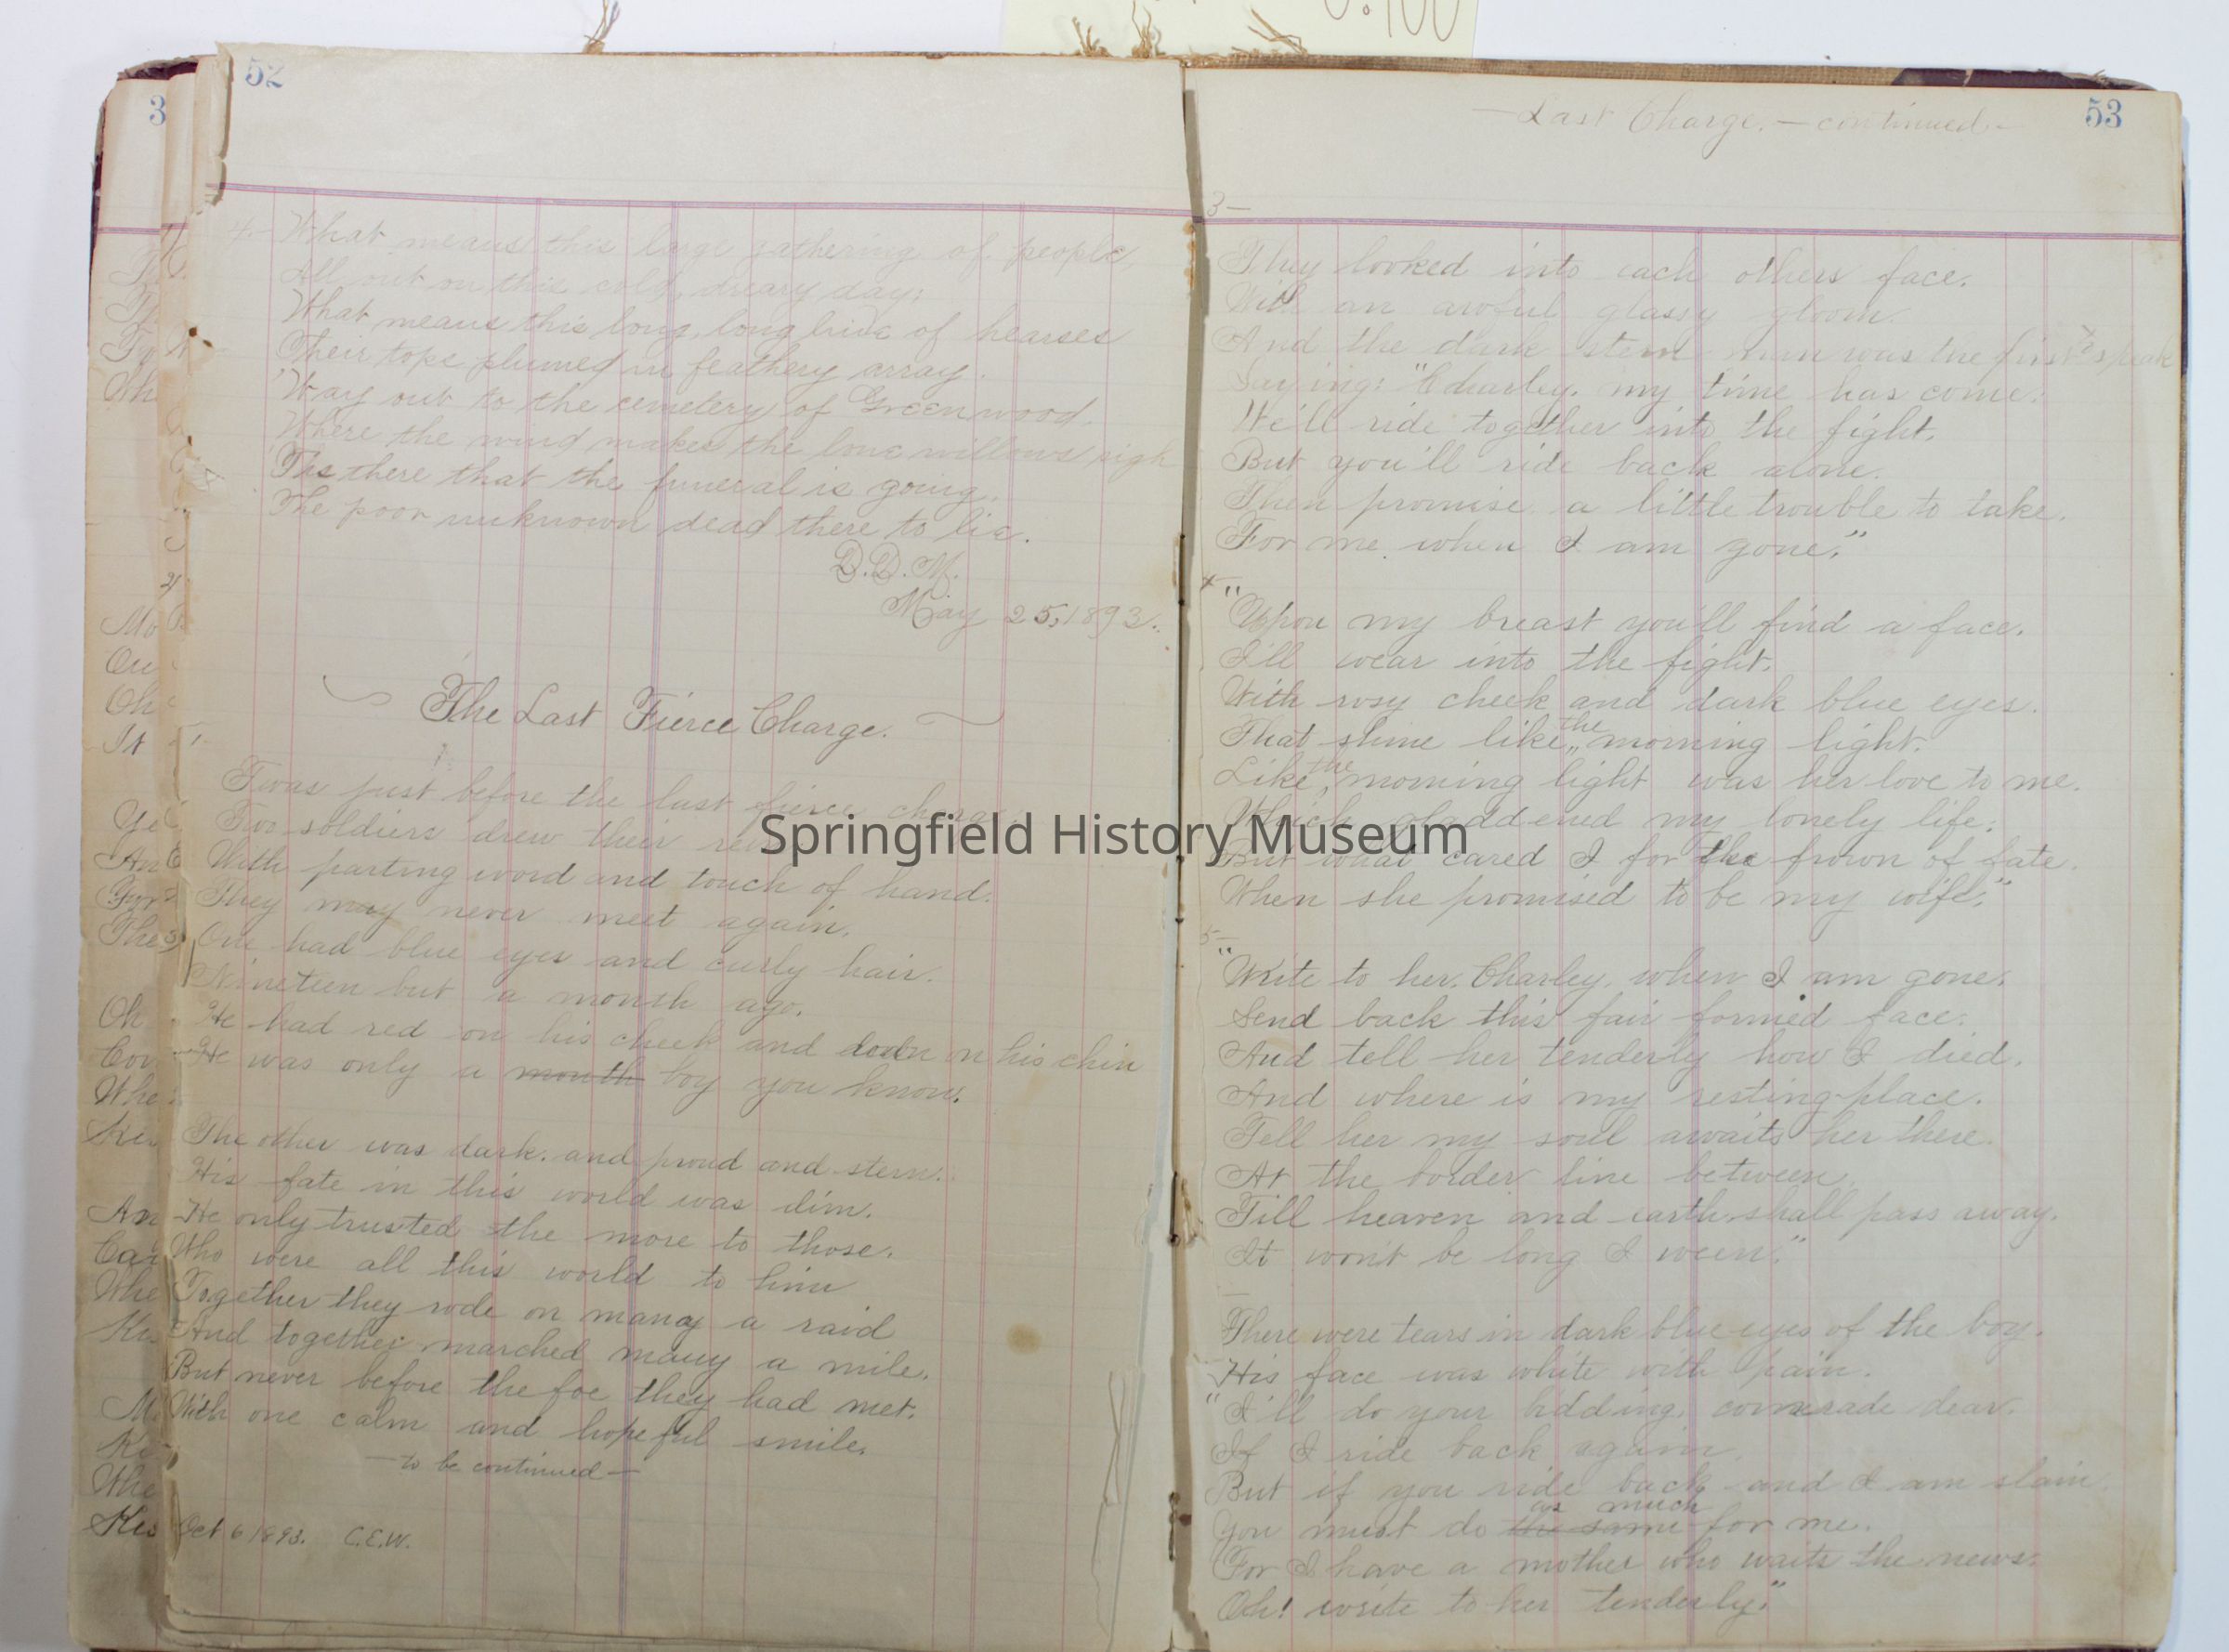 52
4- What means this large gathering of people,
All out on this cold, dreary day;
What means this long, long line of hearses
Their tops plumed in feathery array.
'Way out to the cemetery of Greenwood.
Where the wind makes the lone willows sigh
'Tis there that the funeral is going.
The poor unknown dead there to lie.
D.D.M.
May 25, 1893.
The Last Fierce Charge.
1-
Twas just before the last fierce charge
Two soldiers drew their
With parting word and touch of hand.
They may never meet again.
One had blue eyes and curly hair.
Nineteen but a month ago.
He had red on his cheek and down on his chin
He was only a month boy you know.
The other was dark, and proud and stern.
His fate in this world was dim.
He only trusted the more to those.
Who were all this world to him
Together they rode on many a raid
And together marched many a mile.
But never before the foe they had met.
With one calm and hopeful smile.
-to be continued-
Oct 6 1893. C.E.W.
-Last Charge.-continued-
53
3-
They looked into each others face.
With an awful glassy gloom.
And the dark stern man was the first to speak
Saying: "Charley, my time has come.
We'll ride together into the fight.
But you'll ride back alone.
Then promise a little trouble to take.
For me when I am gone."
4-
"Upon my breast you'll find a face.
I'll wear into the fight.
With rosy cheek and dark blue eyes.
That shine like the morning light.
Like the morning light was her love to me.
Which gladdened my lonely life.
But what cared I for the frown of fate.
When she promised to be my wife."
5-
"Write to her, Charley, when I am gone.
Send back this fair formed face.
And tell her tenderly how I died.
And where is my resting-place.
Tell her my soul awaits her there.
At the border line between.
Till heaven and earth shall pass away.
It won't be long I ween."
There were tears in dark blue eyes of the boy.
His face was white with pain.
"I'll do your bidding, comrade dear.
If I ride back again.
But if you ride back and I am slain
You must do the same as much for me.
For I have a mother who waits the news.
Oh! write to her tenderly."
Springfield History Museum